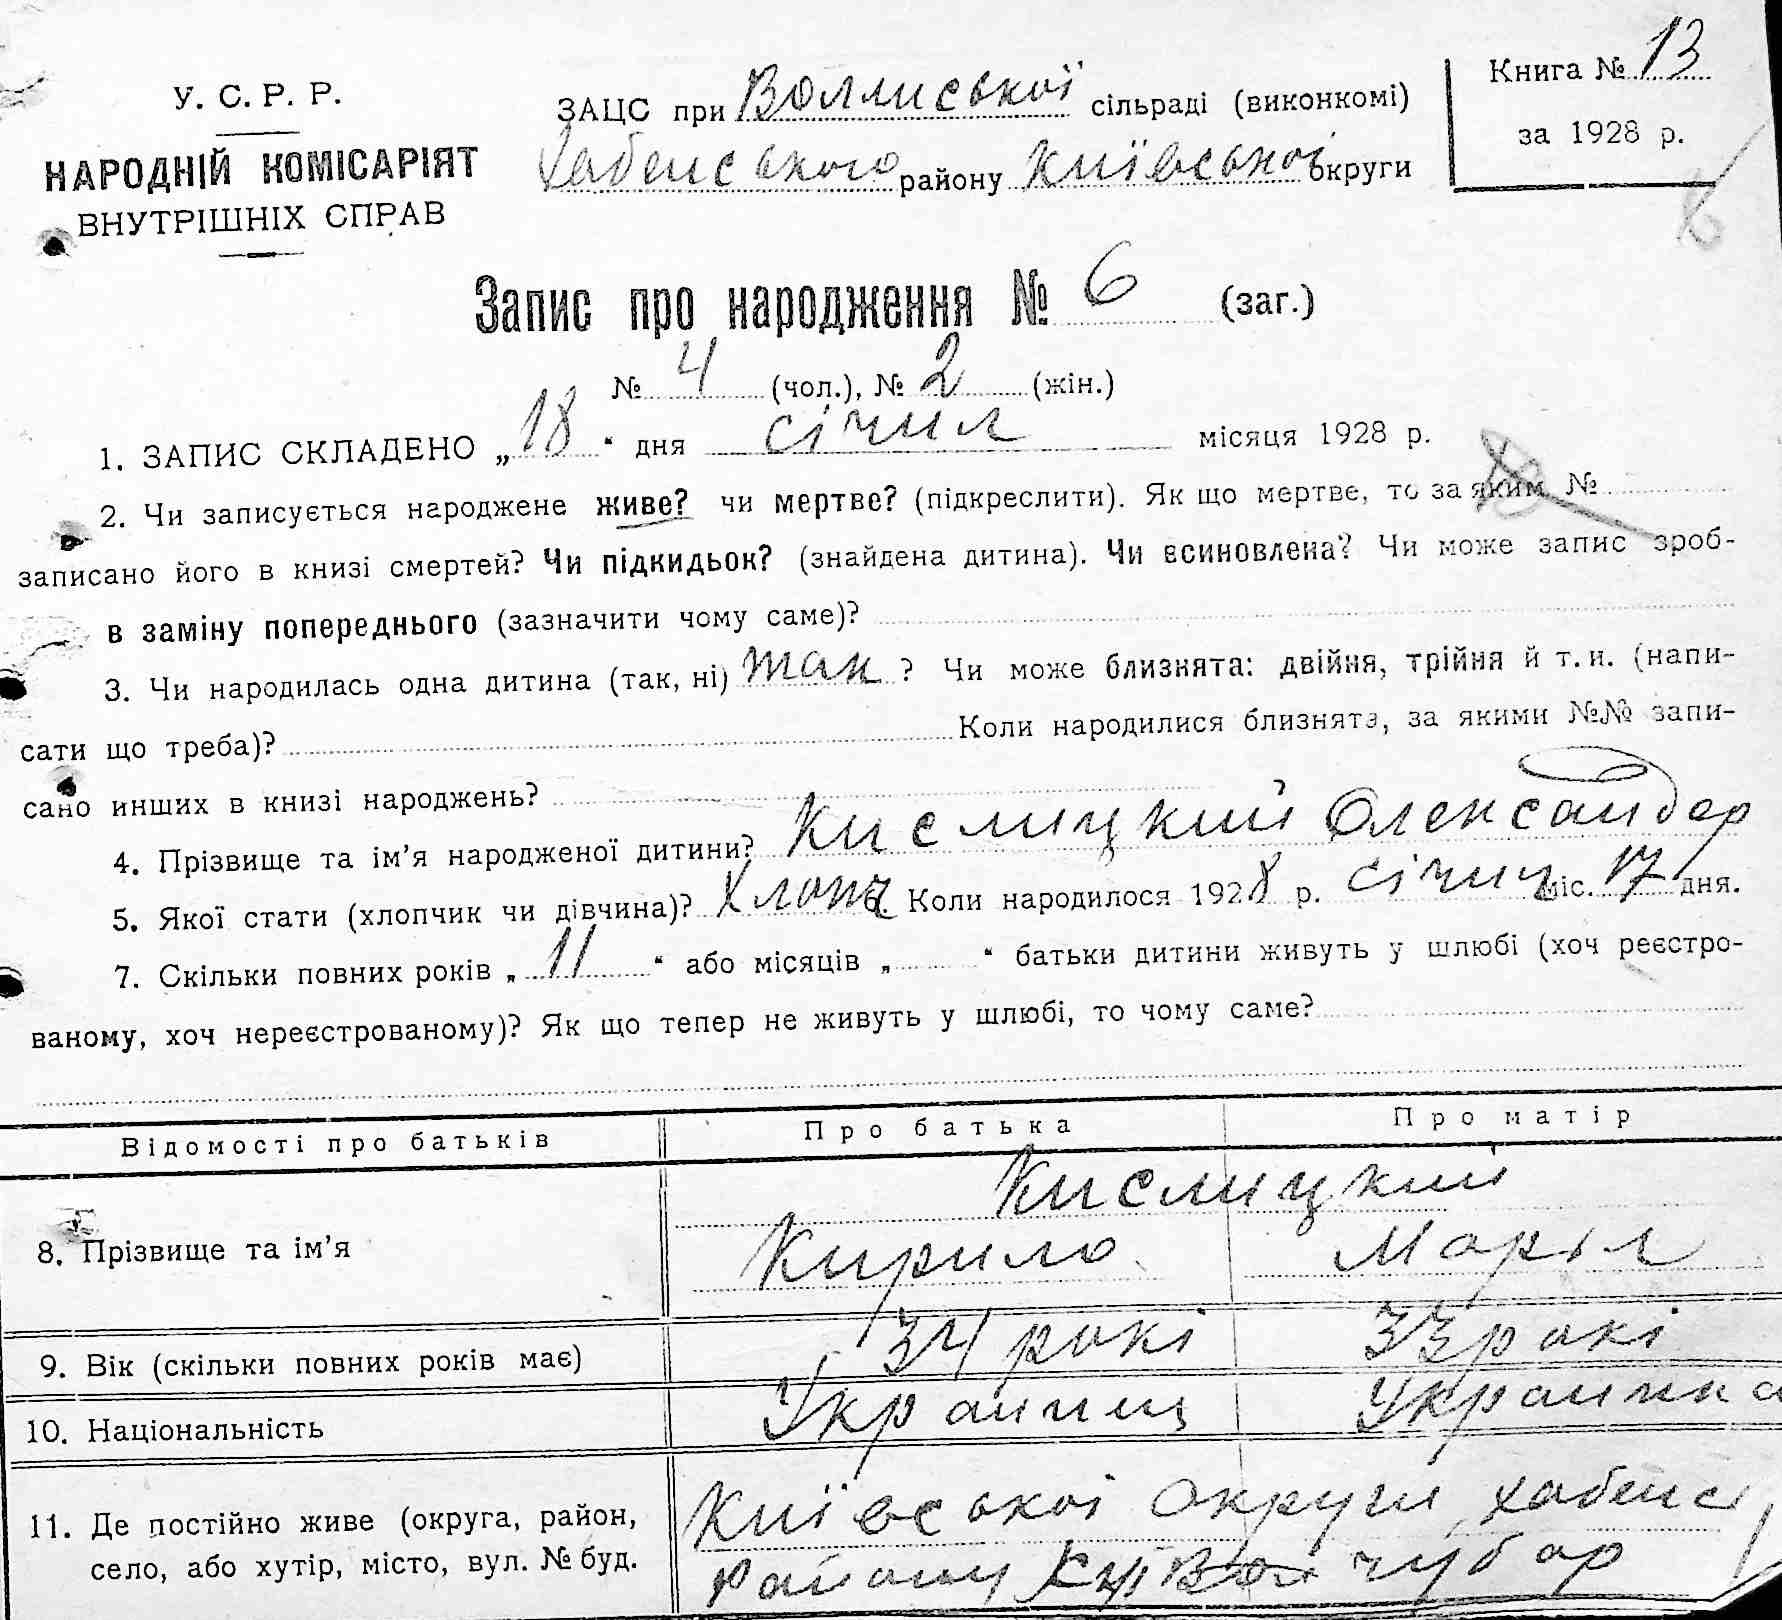 У. С. Р. Р.
НАРОДНІЙ КОМІСАРІЯТ
ВНУТРІШНІХ СПРАВ
ЗАЦС при сільраді (виконкомі)
Хабенського району Київської округи
Книга № 13
за 1928 р.
Запис про народження № 6 (заг.)
№ 4 (чол.), № 2 (жін.)
1. ЗАПИС СКЛАДЕНО „ 18 “ дня січня місяця 1928 р.
2. Чи записується народжене живе? чи мертве? (підкреслити). Як що мертве, то за яким №
записано його в книзі смертей? Чи підкидьок? (знайдена дитина). Чи всиновлена? Чи може запис зроб-
в заміну попереднього (зазначити чому саме)?
3. Чи народилась одна дитина (так, ні) так ? Чи може близнята: двійня, трійня й т. и. (напи-
сати що треба)? Коли народилися близнята, за якими №№ запи-
сано инших в книзі народжень?
4. Прізвище та ім’я народженої дитини? Кислицкий Олександер
5. Якої стати (хлопчик чи дівчина)? Хлопч 6. Коли народилося 1928 р. січня міс. 17 дня.
7. Скільки повних років „ 11 “ або місяців „ “ батьки дитини живуть у шлюбі (хоч реєстро-
ваному, хоч нереєстрованому)? Як що тепер не живуть у шлюбі, то чому саме?
Відомості про батьків Про батька Про матір
8. Прізвище та ім’я Кислицкий
Кирило Марія
9. Вік (скільки повних років має) 34 рокі 33 рокі
10. Національність Украинц Украинка
11. Де постійно живе (округа, район, село, або хутір, місто, вул. № буд. Київської округи хабенс
району